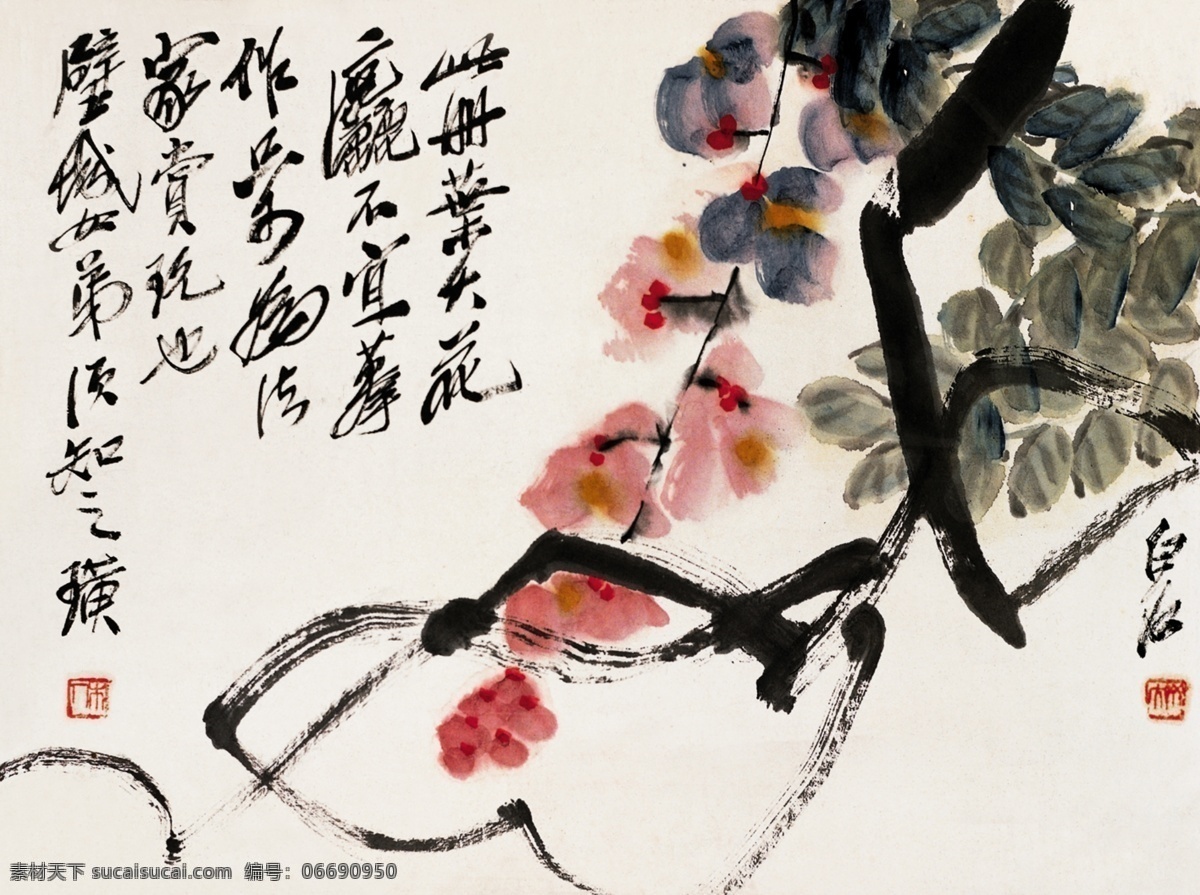 此冊葉大花
麤不宜摹
作只可為法
家賞玩也
璧城女弟須知之璜
白石
素材天下 sucaisucai.com 编号：06690950